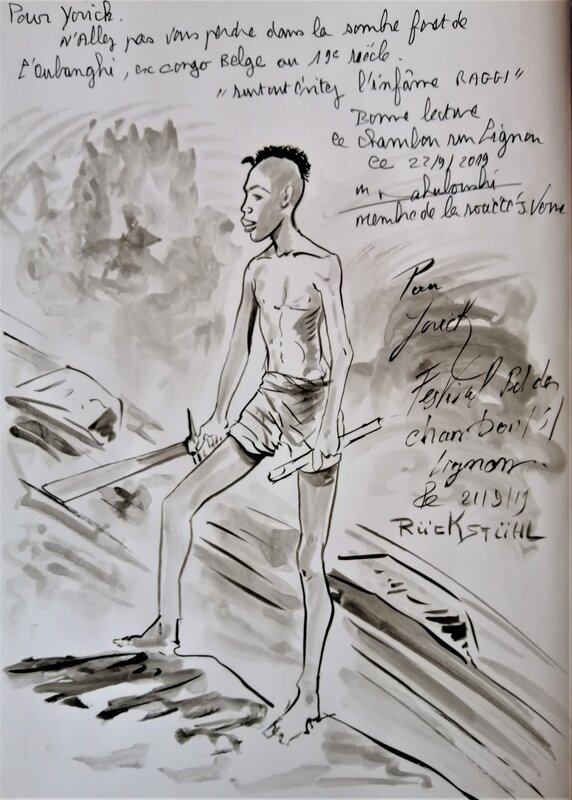 Pour Yorick.
N'Allez pas vous perdre dans la sombre foret de
l'oubanghi, ex congo Belge au 19e siècle.
"surtout évitez l'infâme RAGGI"
Bonne lecture
Le chambon sur Lignon
Le 22/9/2019
membre de la société J. Verne
Pour
Yorick
Festival Bd des
chambon / s /
Lignon.
le 21/9/19
RÜCKSTÜHL